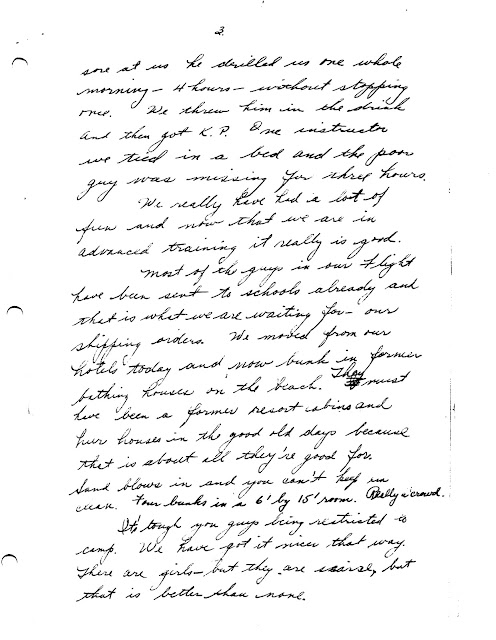 3.
sore at us he drilled us one whole
morning - 4 hours - without stopping
once. We threw him in the drink
and then got K.P. One instructor
we tied in a bed and the poor
guy was missing for three hours.
We really have had a lot of
fun and now that we are in
advanced training it really is good.
Most of the guys in our Flight
have been sent to schools already and
that is what we are waiting for - our
shipping orders. We moved from our
hotels today and now bunk in former
bathing houses on the beach. They must
have been a former resort cabins and
houses in the good old days because
that is about all they're good for.
Sand blows in and you can't keep em
clean. Four bunks in a 6' by 15' room. Really a crowd.
It's tough you guys being restricted to
camp. We have got it nicer that way.
There are girls - but they are scarse, but
that is better than none.